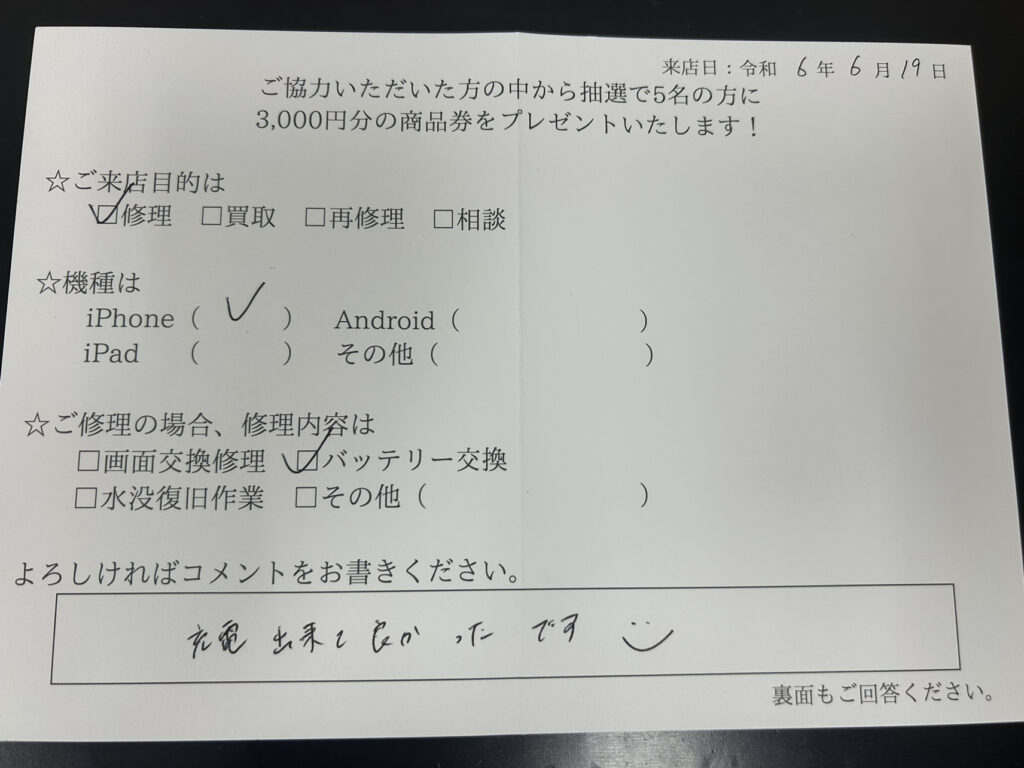 来店日：令和 6 年 6 月 19 日
ご協力いただいた方の中から抽選で5名の方に
3,000円分の商品券をプレゼントいたします！
☆ご来店目的は
☑修理 □買取 □再修理 □相談
☆機種は
iPhone（ ✓ ） Android（ ）
iPad （ ） その他（ ）
☆ご修理の場合、修理内容は
□画面交換修理 ☑バッテリー交換
□水没復旧作業 □その他（ ）
よろしければコメントをお書きください。
充電出来て良かったです
裏面もご回答ください。